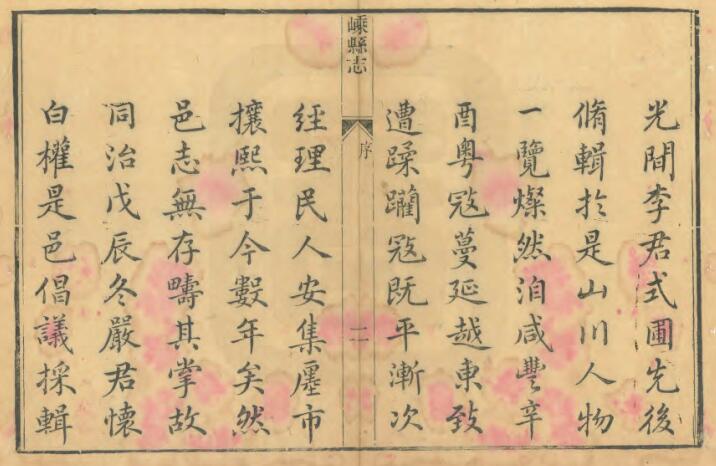 光間李君式圃先後
脩輯於是山川人物
一覽燦然洎咸豐辛
酉粵寇蔓延越東致
遭蹂躪寇既平漸次
嵊縣志
序
二
經理民人安集廛市
攘熙于今數年矣然
邑志無存疇其掌故
同治戊辰冬嚴君懷
白權是邑倡議採輯